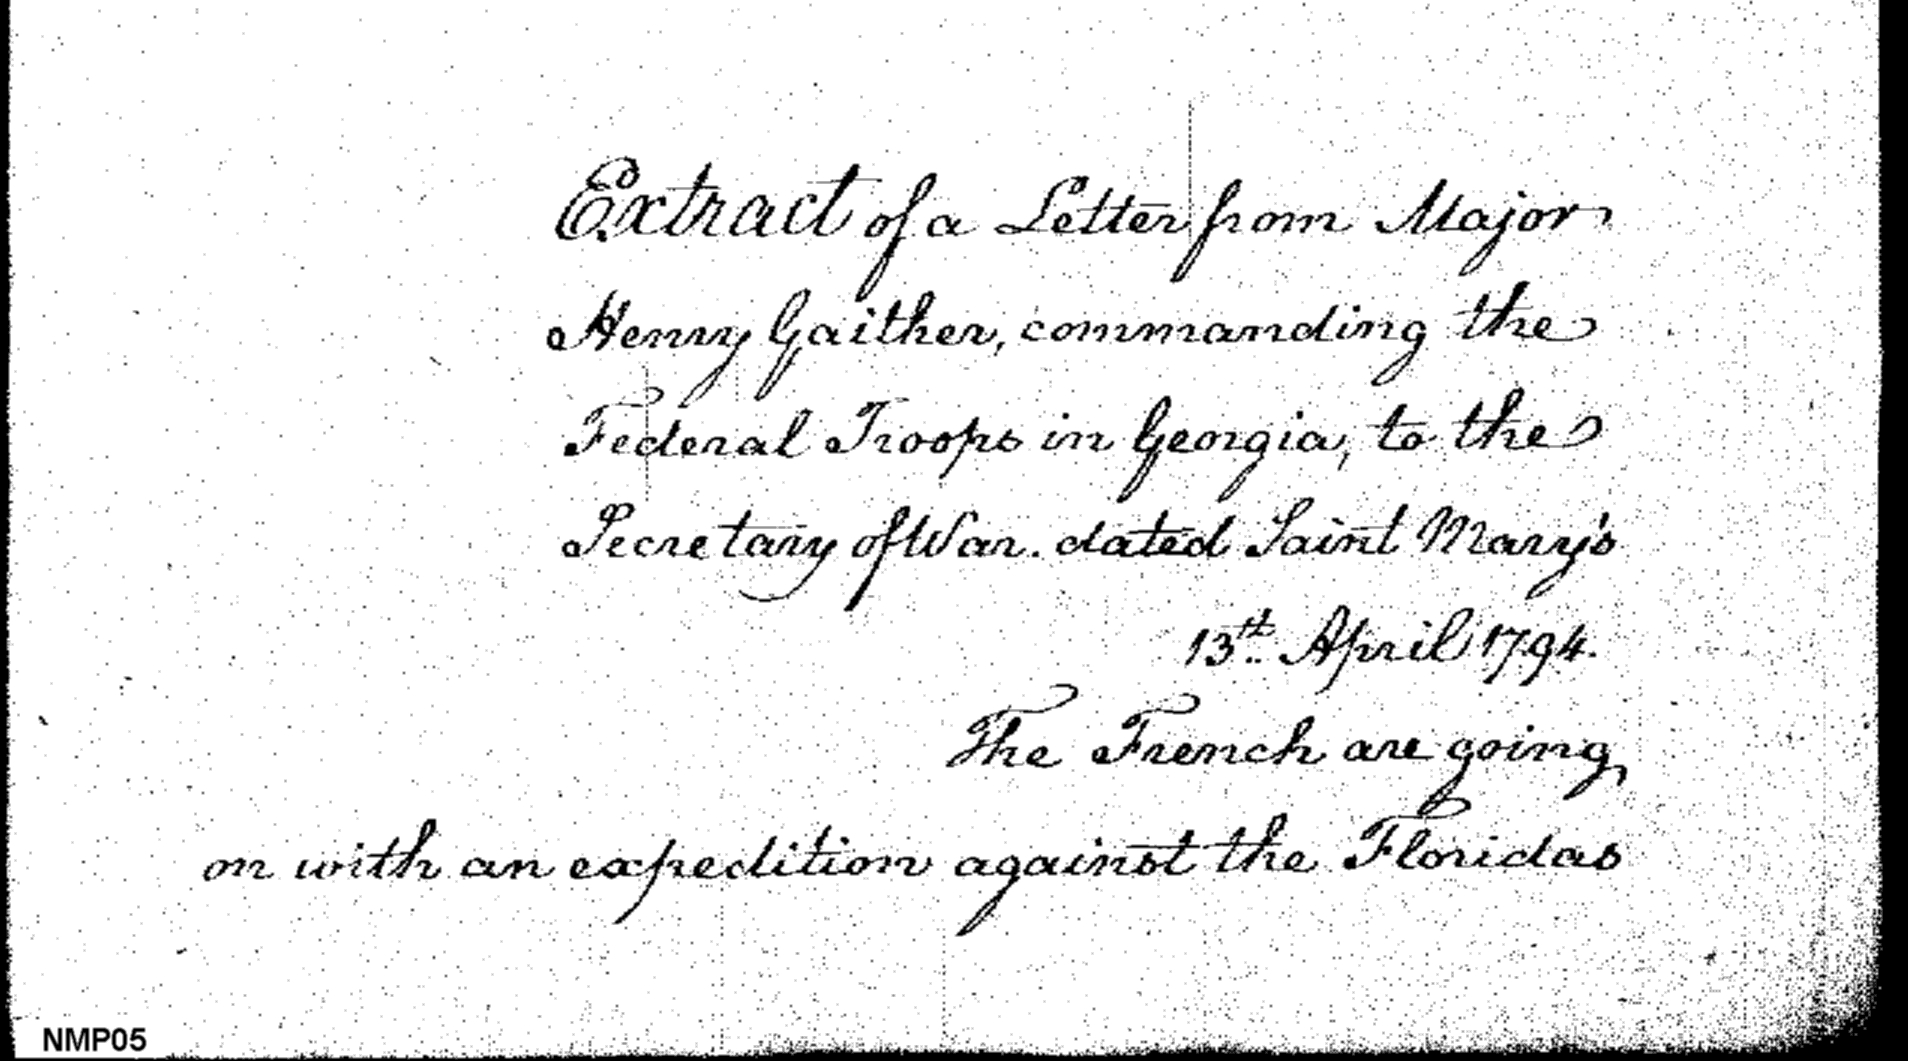 Extract of a Letter from Major
Henry Gaither, commanding the
Federal Troops in Georgia, to the
Secretary of War. dated Saint Mary's
13th. April 1794.
The French are going
on with an expedition against the Floridas
NMP05